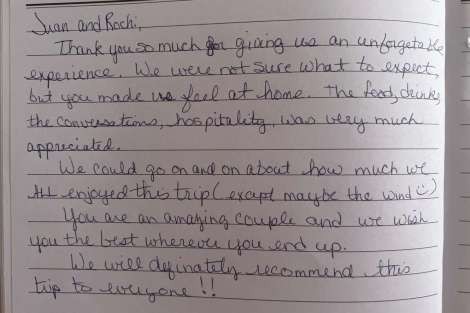 Juan and Rochi,
Thank you so much for giving us an unforgetable
experience. We were not sure what to expect,
but you made us feel at home. The food, drinks,
the conversations, hospitality, was very much
appreciated.
We could go on and on about how much we
ALL enjoyed this trip (except maybe the wind ☺)
You are an amazing couple and we wish
you the best wherever you end up.
We will definately recommend this
trip to everyone!!